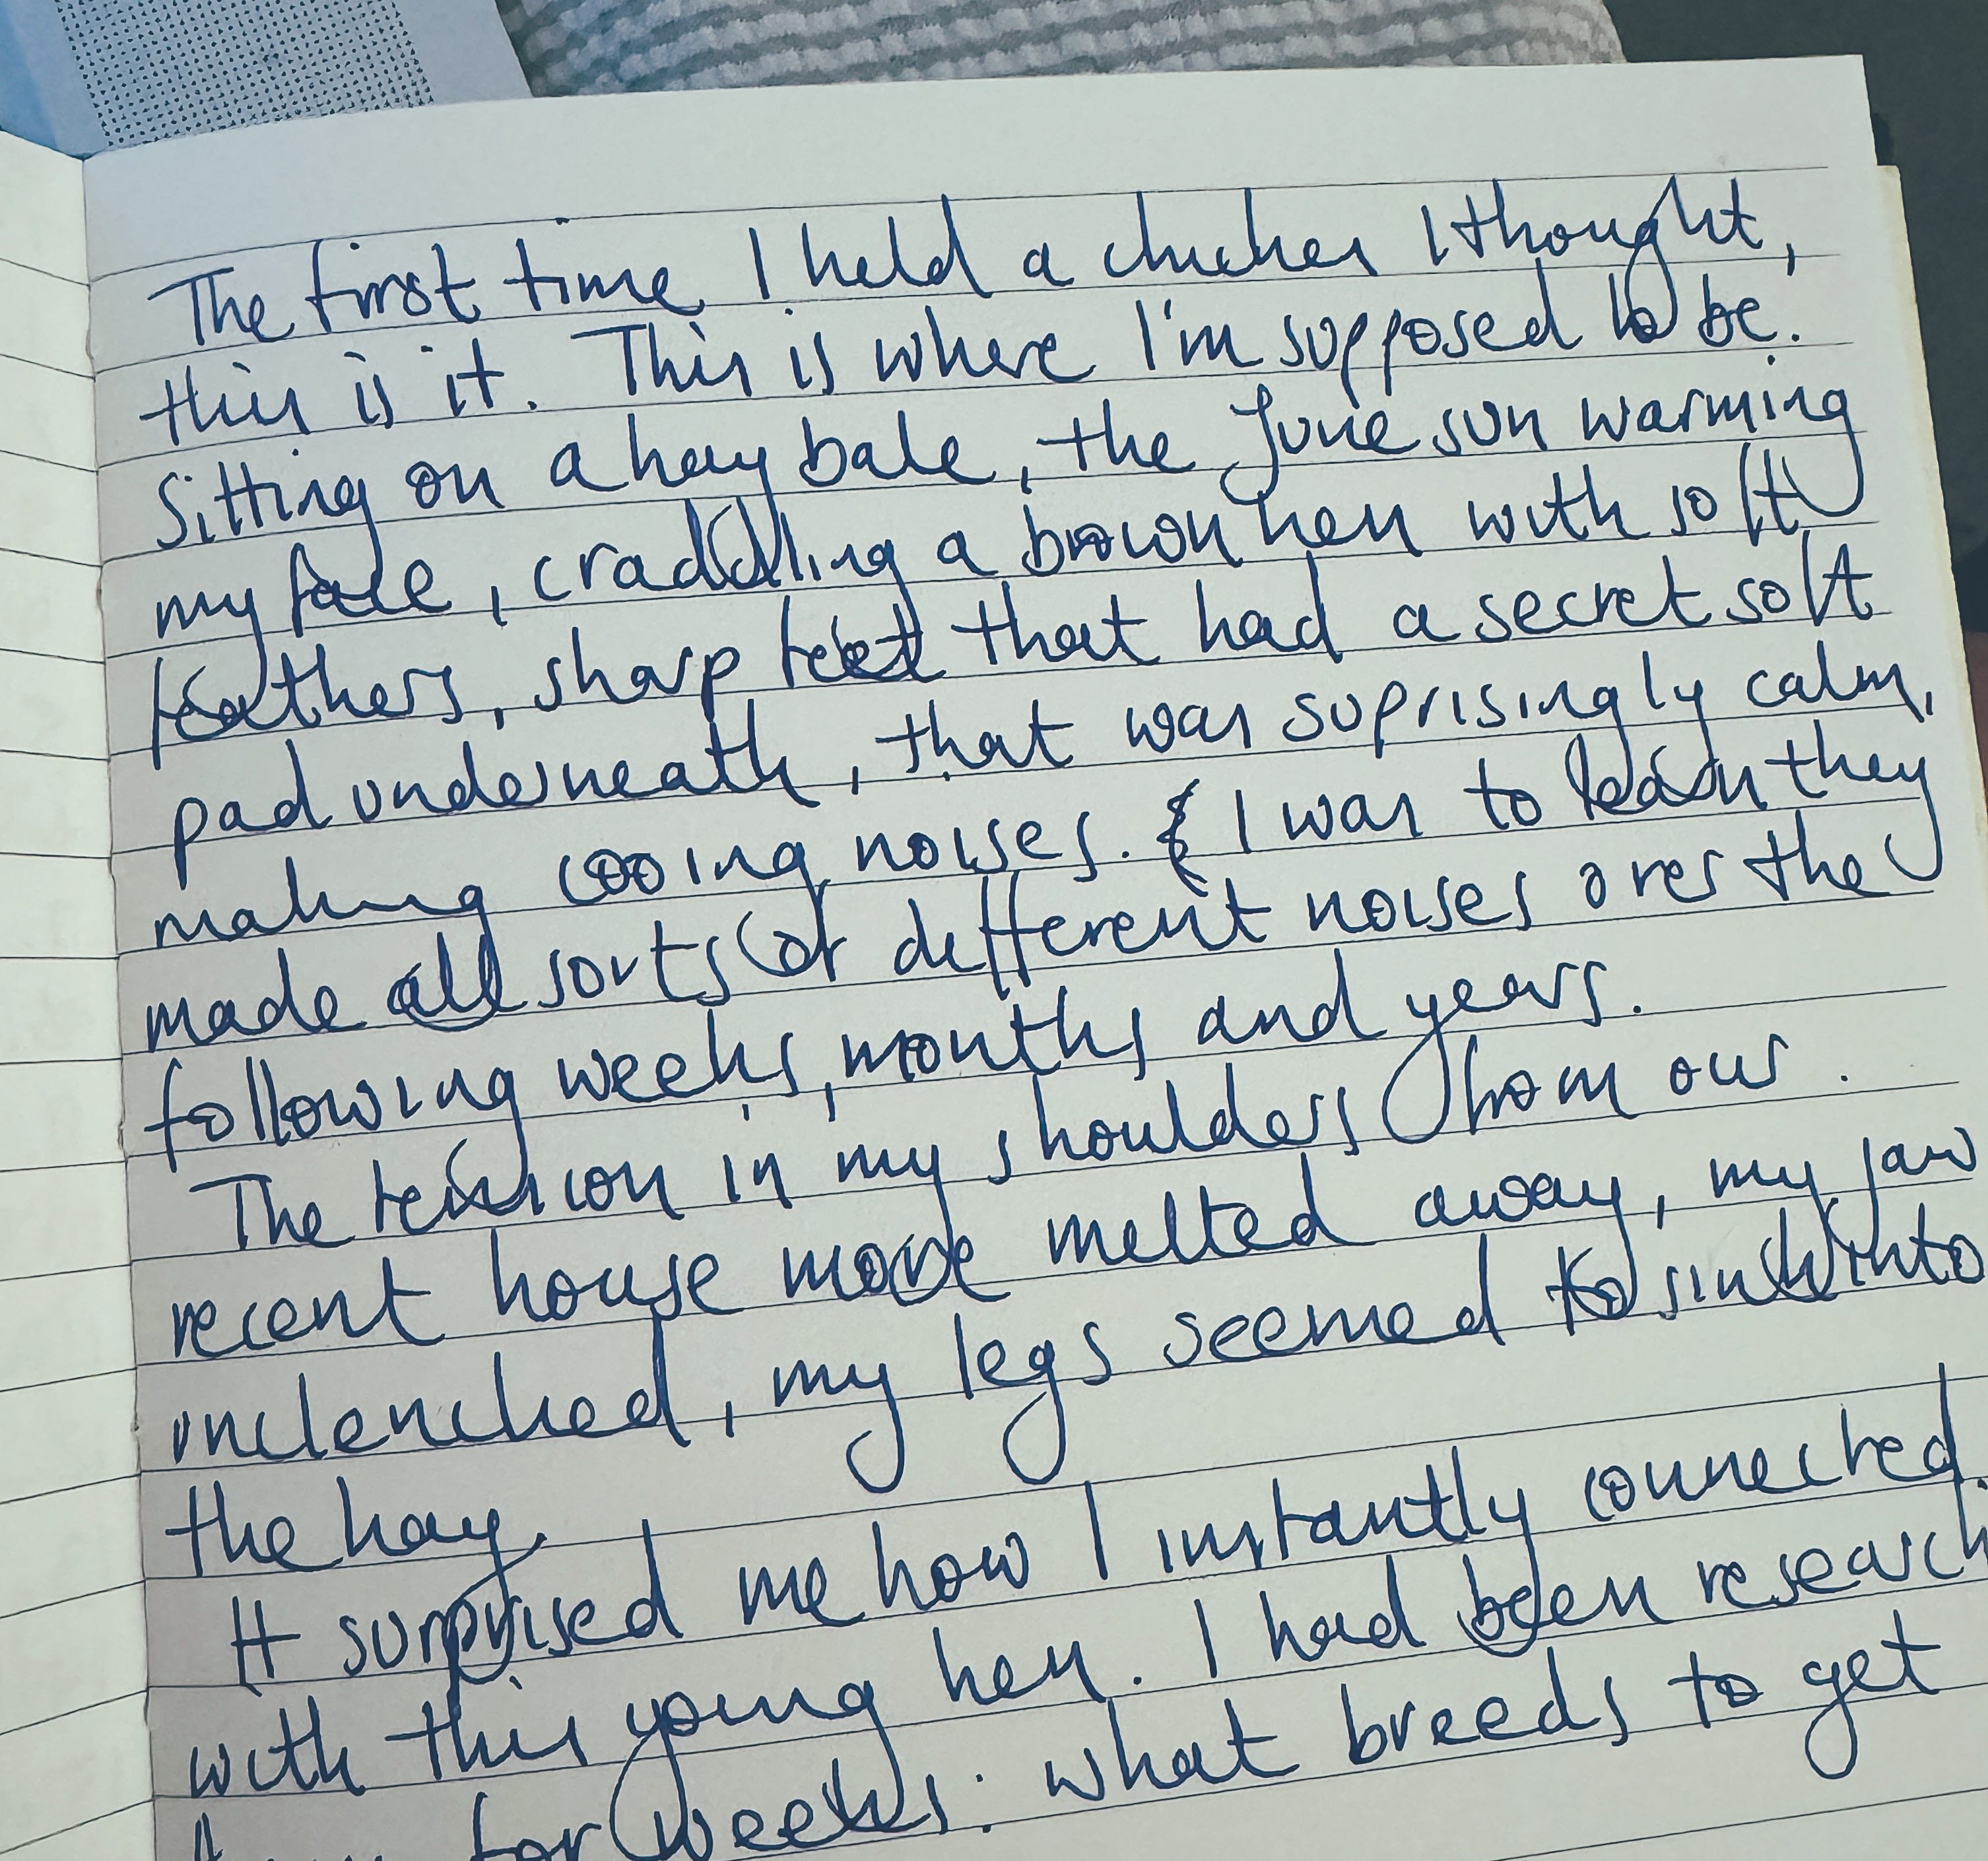 The first time I held a chicken I thought,
this is it. This is where I'm supposed to be.
Sitting on a hay bale, the June sun warming
my face, craddling a brown hen with soft
feathers, sharp feet that had a secret soft
pad underneath, that was suprisingly calm,
making cooing noises. & I was to learn they
made all sorts of different noises over the
following weeks, months and years.
The tension in my shoulders from our
recent house move melted away, my jaw
unclenched, my legs seemed to sink into
the hay.
It surprised me how I instantly connected
with this young hen. I had been research
for weeks: what breeds to get